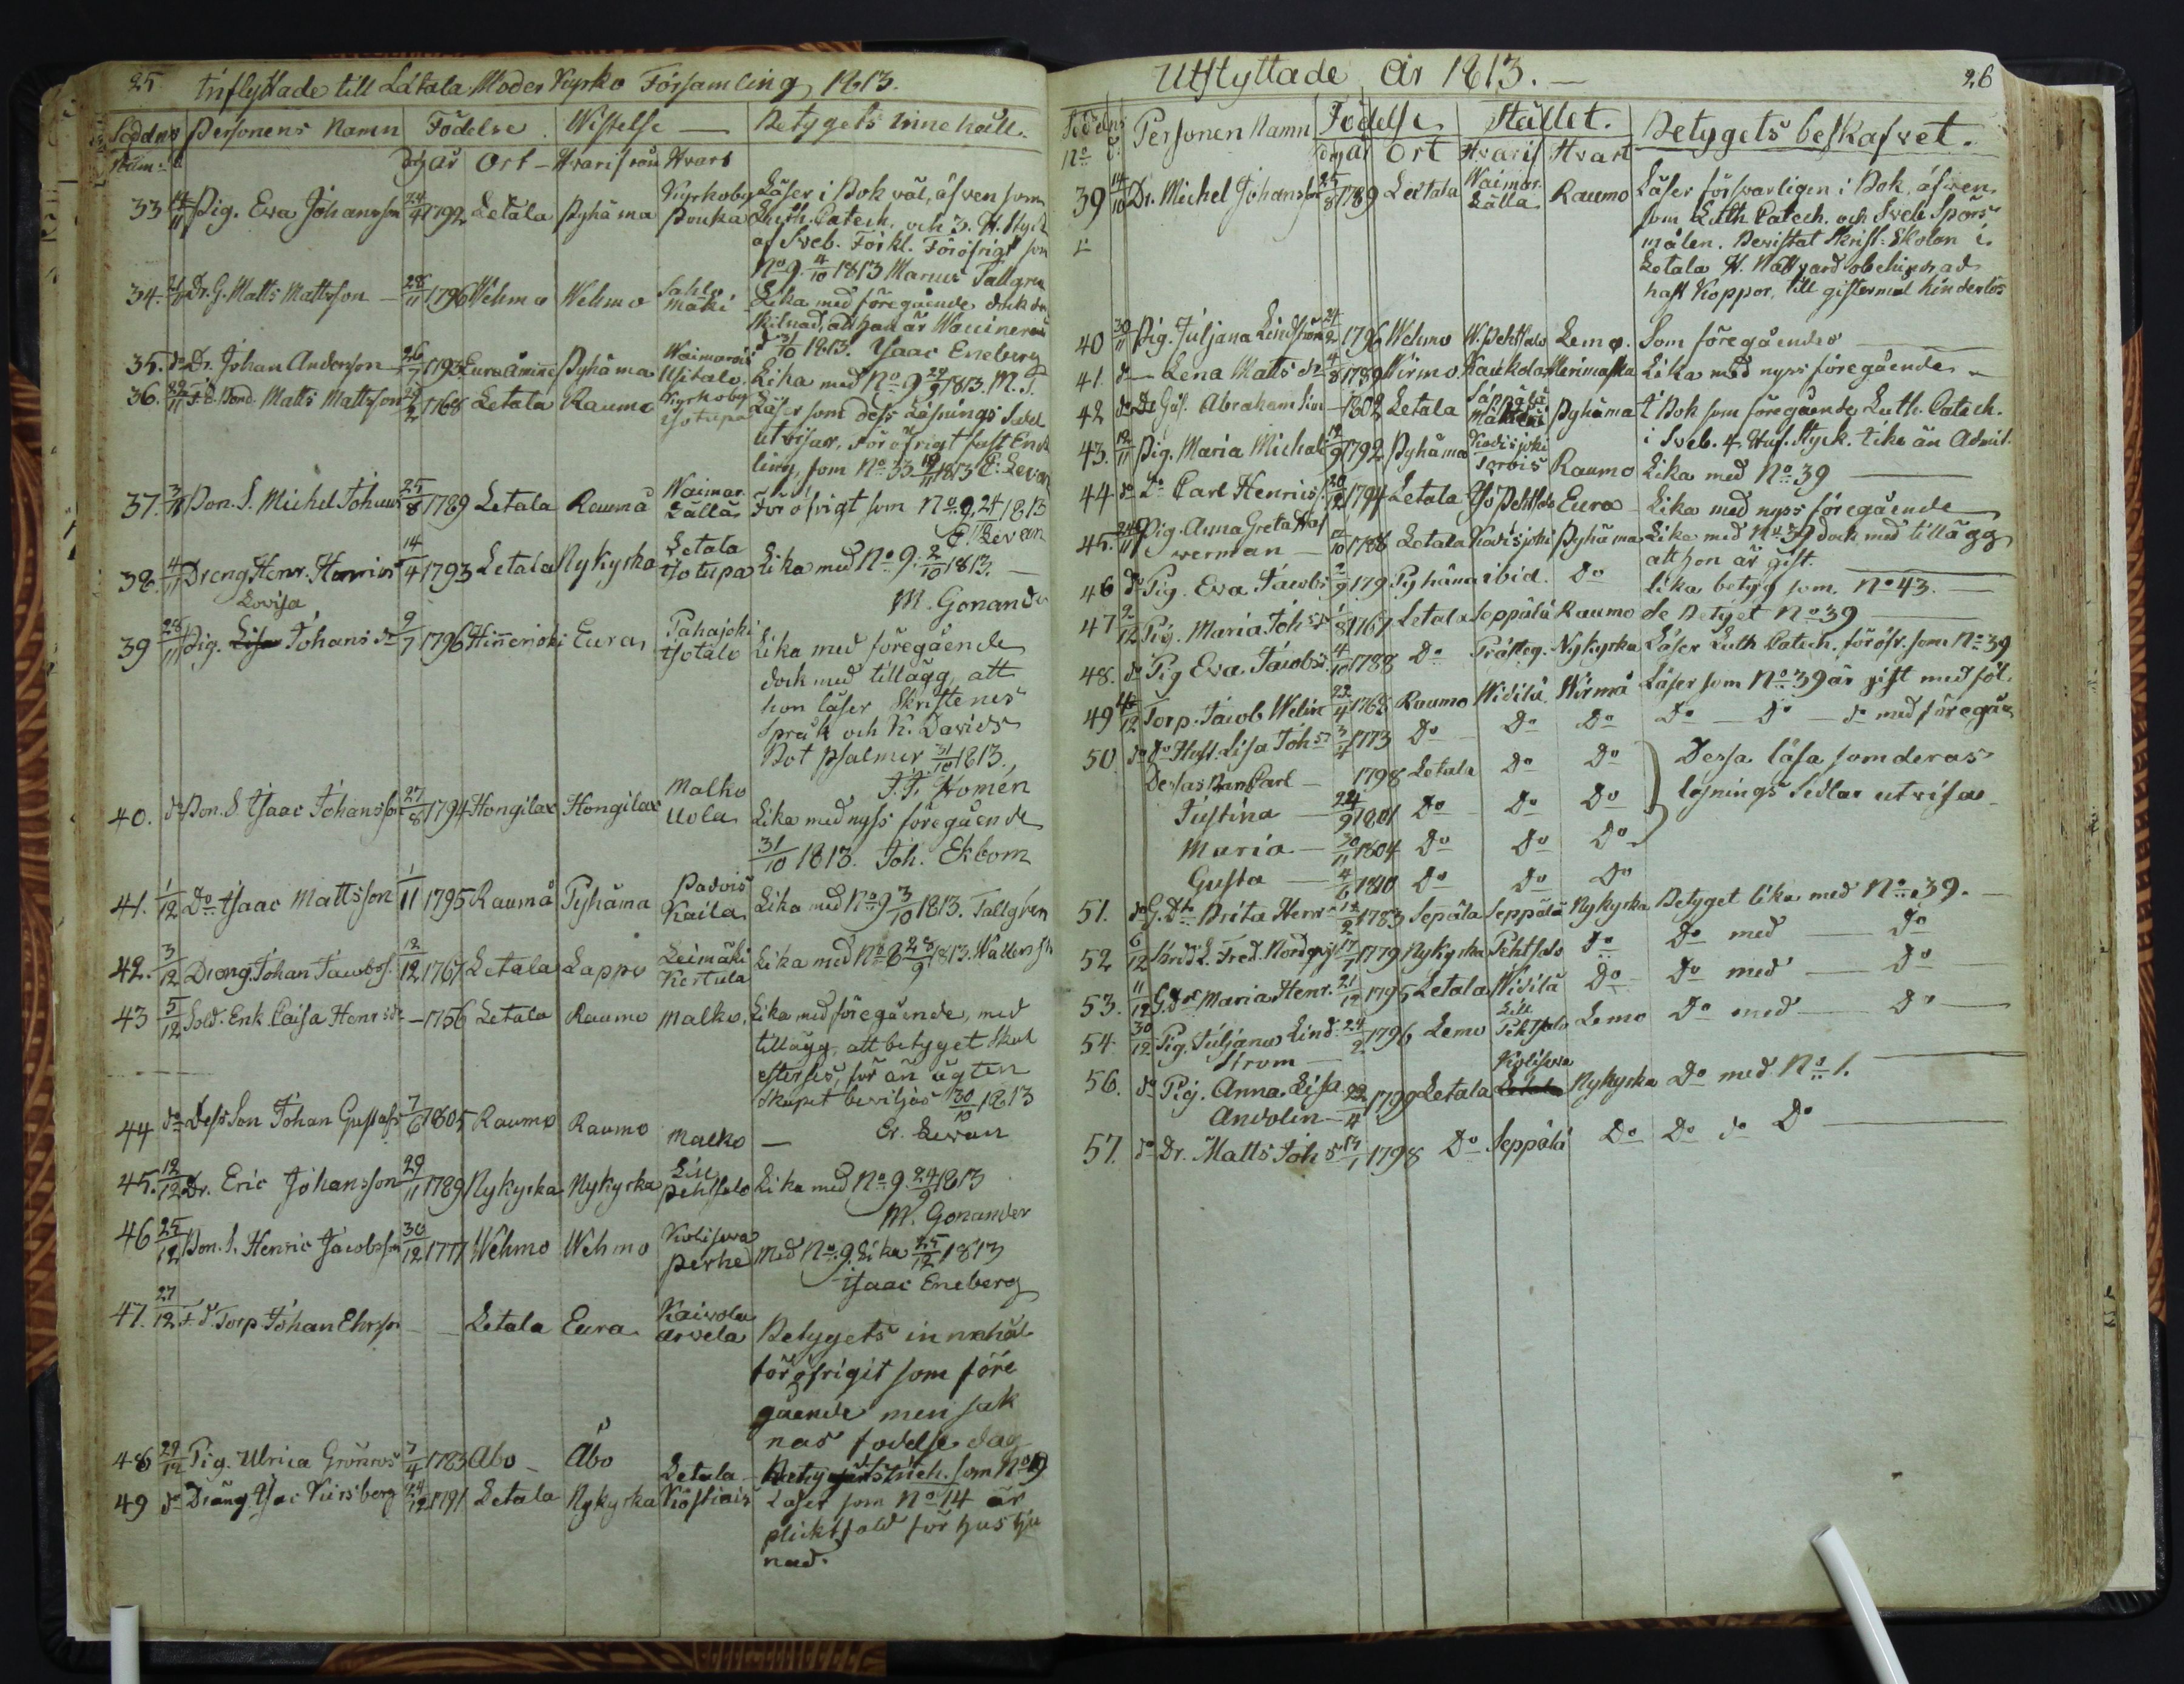 25 Inflyttade till Letala Moder Kyrko Församling 1813.
Personens Namn Födelse Wistelse — Betygets Innehåll.
Num: dag år Ort — Hvarifrån Hvart
33 14/11 Pig. Eva Johansson 24/4 1792 Letala Pyhäma Kyrkoby Pouka Läser i Bok väl, äfven som
Luth. Catech. och 3. H. Styck
af Sveb. Förkl. Föröfrigt som
No 9. 4/10 1813 Marcus Tallgren
34. Dr. G. Matts Mattsson — 28/11 1796 Wehmo Wehmo Sahlo mäki Lika med föregående dock den
skilnad, att han är Waccinerad
31/10 1813. Isaac Eneberg
35. do Dr. Johan Andersson 26/7 1793 Eura Åminne Pyhäma Waimaris Usitalo. Lika med No 9 29/9 1813. M. T.
36. 29/11 F.d. Bond. Matts Mattsson 1768 Letala Raumo Kyrkoby Isotupa Läser som dess Läsnings Sedel
utvisar, För öfrigt fast Ende
ling, som No 33 1813 E. Levan
37. Bon. S. Michel Johans 25/8 1789 Letala Raumå Waimar. Källa För öfrigt som No 9, 24 1813
E. Levan
38. 4/11 Dreng Henr. Henrics 14/4 1793 Letala Nykyrka Letala Isotupa Lika med No 9. 2/10 1813. —
M. Gonander
Lovisa
39 28/11 Pig. Johans dr 9/7 1796 Hinnerjoki Eura Pahajoki Isotalo Lika med föregående
dock med tillägg, att
hon läser Skriftenes
Språk och K. Davids
Bot psalmer 31/10 1813.
F. F. Homén
40. do Bon. S Isaac Johansson 27/8 1794 Hongilax Hongilax Malko Uola Lika med nyss föregående
31/10 1813. Joh. Ekbom
41. 1/12 Do Isaac Mattsson 1/11 1795 Raumå Pyhäma Padvis Kaila Lika med No 9 3/10 1813. Tallgren
42. 3/12 Dreng Johan Jacobss. 12/12 1767 Letala Lappo Leimäki Kertula Lika med No 8 28/9 1813.
43 5/12 Sold. Enk Caisa Henrs dr — 1756 Letala Raumo Malko, Lika med föregående, med
tillägg, att betyget skal
efterses, för än ägten
skapet beviljas 30/10 1813
44 do Dess Son Johan Gustafs 7/6 1805 Raumo Raumo Malko — Er. Levan
45. 12/12 Dr. Eric Johansson 29/11 1789 Nykyrka Nykyrka Lill pehtsalo Lika med No 9. 24/9 1813
M. Gonander
46 25/12 Bon. S. Henric Jacobsson 30/12 1777 Wehmo Wehmo Kolisova Perhe Med No 9. Lika 25/12 1813
Isaac Eneberg
47. 27/12 F.d. Torp Johan Ehrsson — — Letala Eura Kaivola arvela Betygets innehål
för öfrigit som före
gående men sak
nas födelse dag
48 29/12 Pig. Ulrica Grönroos 7/4 1783 Abo — Åbo Letala — Betyget Strech. som No 9
49 do Dräng Isac Viirsberg 24/12 1791 Letala Nykyrka Köstiais Läser som No 14 är
pliktfald för hustju
nad.
Utflyttade År 1813. — 26
No Personen Namn Födelse Stället. Betygets beskafvet.
dag år Ort Hvarif Hvart
39 14/10 Dr. Michel Johansson 25/8 1789 Letala Waimar. Källa Raumo Läser försvarligen i Bok, äfven
som Luth Catech. och Sveb. Spörs
målen. Bevistat Skrift: Skolan i
Letala H. Nattvard obehindrad
haft Koppor, till giftermål hinderlös
40 30/11 Pig. Juljana Lindström 24/2 1796 Wehmo W. Pehtsalo Lemo. Som föregående —
41. do — Lena Matts dr 4/8 1789 Wirmo. Kaukola Merimasku Lika med nyss föregående —
42 do Dr Gös. Abraham Sim — 1802 Letala Säppälä Pyhäma I Bok som föregående, Luth. Catech.
i Sveb. 4. Huf. Styck. Icke än Admit.
43. 12/11 Pig. Maria Michels 12/9 1792 Pyhäma Kovisjoki Sorvis Raumo Lika med No 39 —
44 do Do Carl Henrics. 20/12 1794 Letala Iso Pehtsalo Eura — Lika med nyss föregående
45. 24/11 Pig. Anna Greta Haf verman — 12/10 1788 Letala Kovisjoki Pyhäma Lika med No 39 dock med tillägg
att hon är gift.
46 do Pig. Eva Jacobs 2/9 179 Pyhäma ibid. Do Lika betyg som. No 43. —
47 2/12 Pig. Maria Joh dr 1/8 1767 Letala Seppälä Raumo Se Betyet No 39 —
48. do Pig Eva Jacobs. 4/10 1788 Do Prästeg. Nykyrka Läser Luth Catech. föröfr. som No 39
49 4/12 Torp. Jacob Welin 22/4 1768 Raumo Widilä Wirmå Läser som No 39 är gift med föl.
50. do Do Hust. Lisa Joh dr 3/4 1773 Do Do Do Do — Do — do med föregåen
Dessas Barn Carl — 1798 Letala Do Do Dessa läsa som deras
Justina — 24/9 1801 Do Do Do läsnings Sedlar utvisar
Maria — 30/11 1804 Do Do Do
Gusta — 4/6 1810 Do Do Do
51. do G. Dr Brita Henr 1783 Sepäla Seppälä Nykyrka Betyget lika med No 39. —
52 6/12 Skräd. L. Fred. Nordqvist 17/7 1779 Nykyrka Pehtsalo Do Do med — Do
53. 11/12 G. Dr Maria Henr. 21/12 1795 Letala Widilä Do Do med — Do
54. 30/12 Pig. Juljana Lind Strom — 24/2 1796 Lemo Lill Pehtsalo Lemo Do med — Do —
56. do Pig. Anna. Lisa Andolin — 22/4 1799 Letala Kolisova Nykyrka Do med No 1. —
57. do Dr. Matts Joh 17/1 1798 Do Seppälä Do Do do Do —